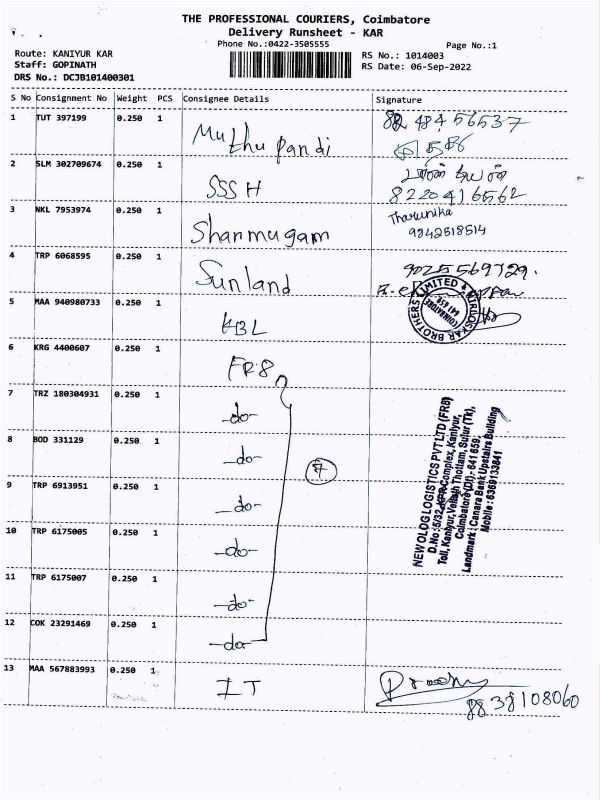 THE PROFESSIONAL COURIERS, Coimbatore
Delivery Runsheet - KAR
Phone No.:0422-3505555
Page No.:1
Route: KANIYUR KAR
RS No.: 1014003
Staff: GOPINATH
RS Date: 06-Sep-2022
DRS No.: DCJB101400301
S No Consignment No Weight PCS Consignee Details Signature
1 TUT 397199 0.250 1 Muthu pandi
2 SLM 302709674 0.250 1 SSS H 8220416562
3 NKL 7953974 0.250 1 Shanmugam Tharunika 9342518514
4 TRP 6068595 0.250 1 Sunland 9025569729.
5 MAA 940980733 0.250 1 KBL
KIRLOSKAR BROTHERS LIMITED
COIMBATORE
641 659
6 KRG 4400607 0.250 1 FR8
7 TRZ 180304931 0.250 1 -do-
8 BOD 331129 0.250 1 -do-
9 TRP 6913951 0.250 1 -do-
7
10 TRP 6175005 0.250 1 -do-
11 TRP 6175007 0.250 1 -do-
12 COK 23291469 0.250 1 -do-
NEWOLOG LOGISTICS PVT LTD (FR8)
D.No:5/32, Complex, Kaniyur,
Toll, Kaniyur, Thottam, Sulur (Tk),
Coimbatore(Dt).- 641 659.
Landmark : Canara Bank Upstairs Building
Mobile : 6369133841
13 MAA 567883993 0.250 1 IT
8838108060